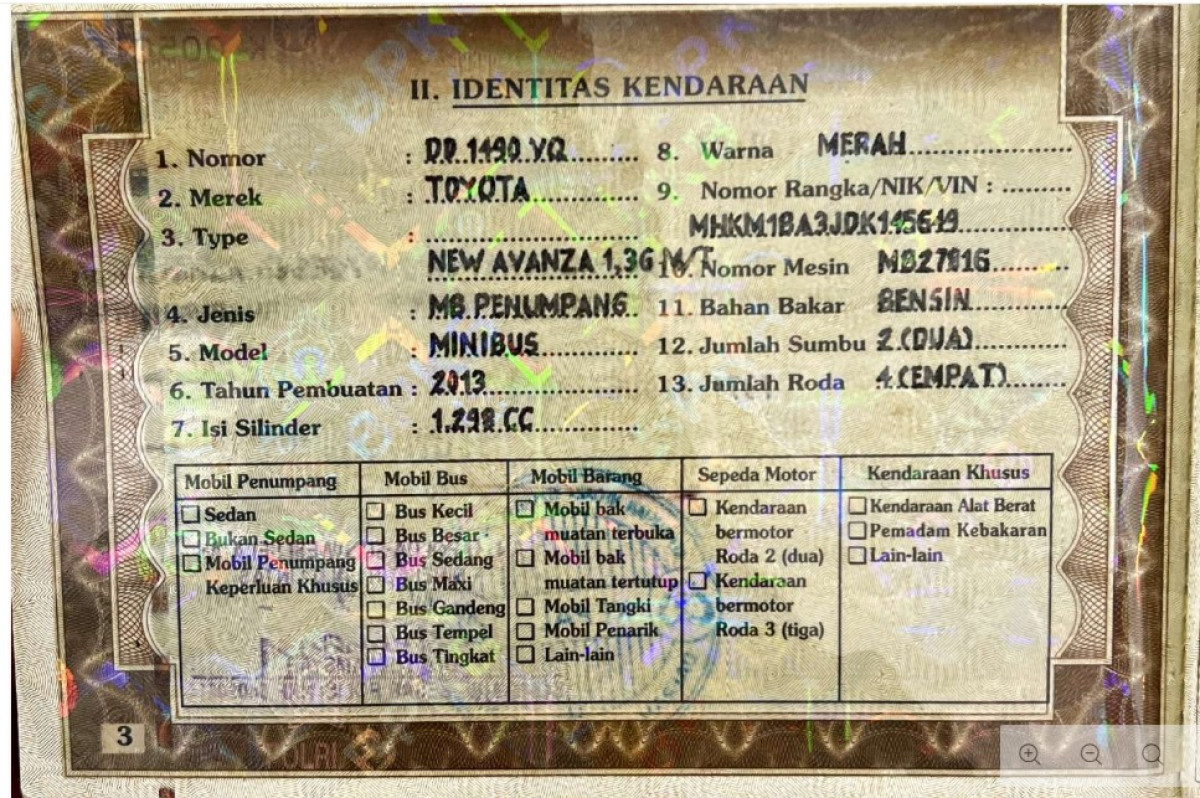 II. IDENTITAS KENDARAAN
1. Nomor : DD 1490 VQ
2. Merek : TOYOTA
3. Type :
NEW AVANZA 1,3G M/T
4. Jenis : MB.PENUMPANG
5. Model : MINIBUS
6. Tahun Pembuatan : 2013
7. Isi Silinder : 1.298 CC
8. Warna MERAH
9. Nomor Rangka/NIK/VIN :
MHKM1BA3JDK145649
10. Nomor Mesin
11. Bahan Bakar BENSIN
12. Jumlah Sumbu 2 (DUA)
13. Jumlah Roda 4 (EMPAT)
Mobil Penumpang
Sedan
Bukan Sedan
Mobil Penumpang
Keperluan Khusus
Mobil Bus
Bus Kecil
Bus Besar
Bus Sedang
Bus Maxi
Bus Gandeng
Bus Tempel
Bus Tingkat
Mobil Barang
Mobil bak
muatan terbuka
Mobil bak
muatan tertutup
Mobil Tangki
Mobil Penarik
Lain-lain
Sepeda Motor
Kendaraan
bermotor
Roda 2 (dua)
Kendaraan
bermotor
Roda 3 (tiga)
Kendaraan Khusus
Kendaraan Alat Berat
Pemadam Kebakaran
Lain-lain
3